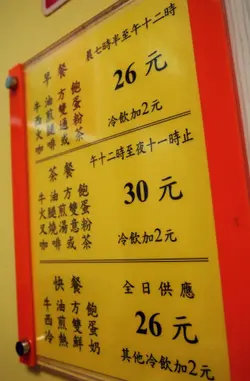 早餐
晨七時半至午十二時
牛油方飽
火腿煎雙蛋
叉燒通粉
咖啡或茶
26元
冷飲加2元
茶餐
午十二時至夜十一時止
牛油方飽
火腿煎蛋
叉燒湯意粉
咖啡或茶
30元
冷飲加2元
快餐
全日供應
牛油方飽
西煎雙蛋
冷熱鮮奶
26元
其他冷飲加2元